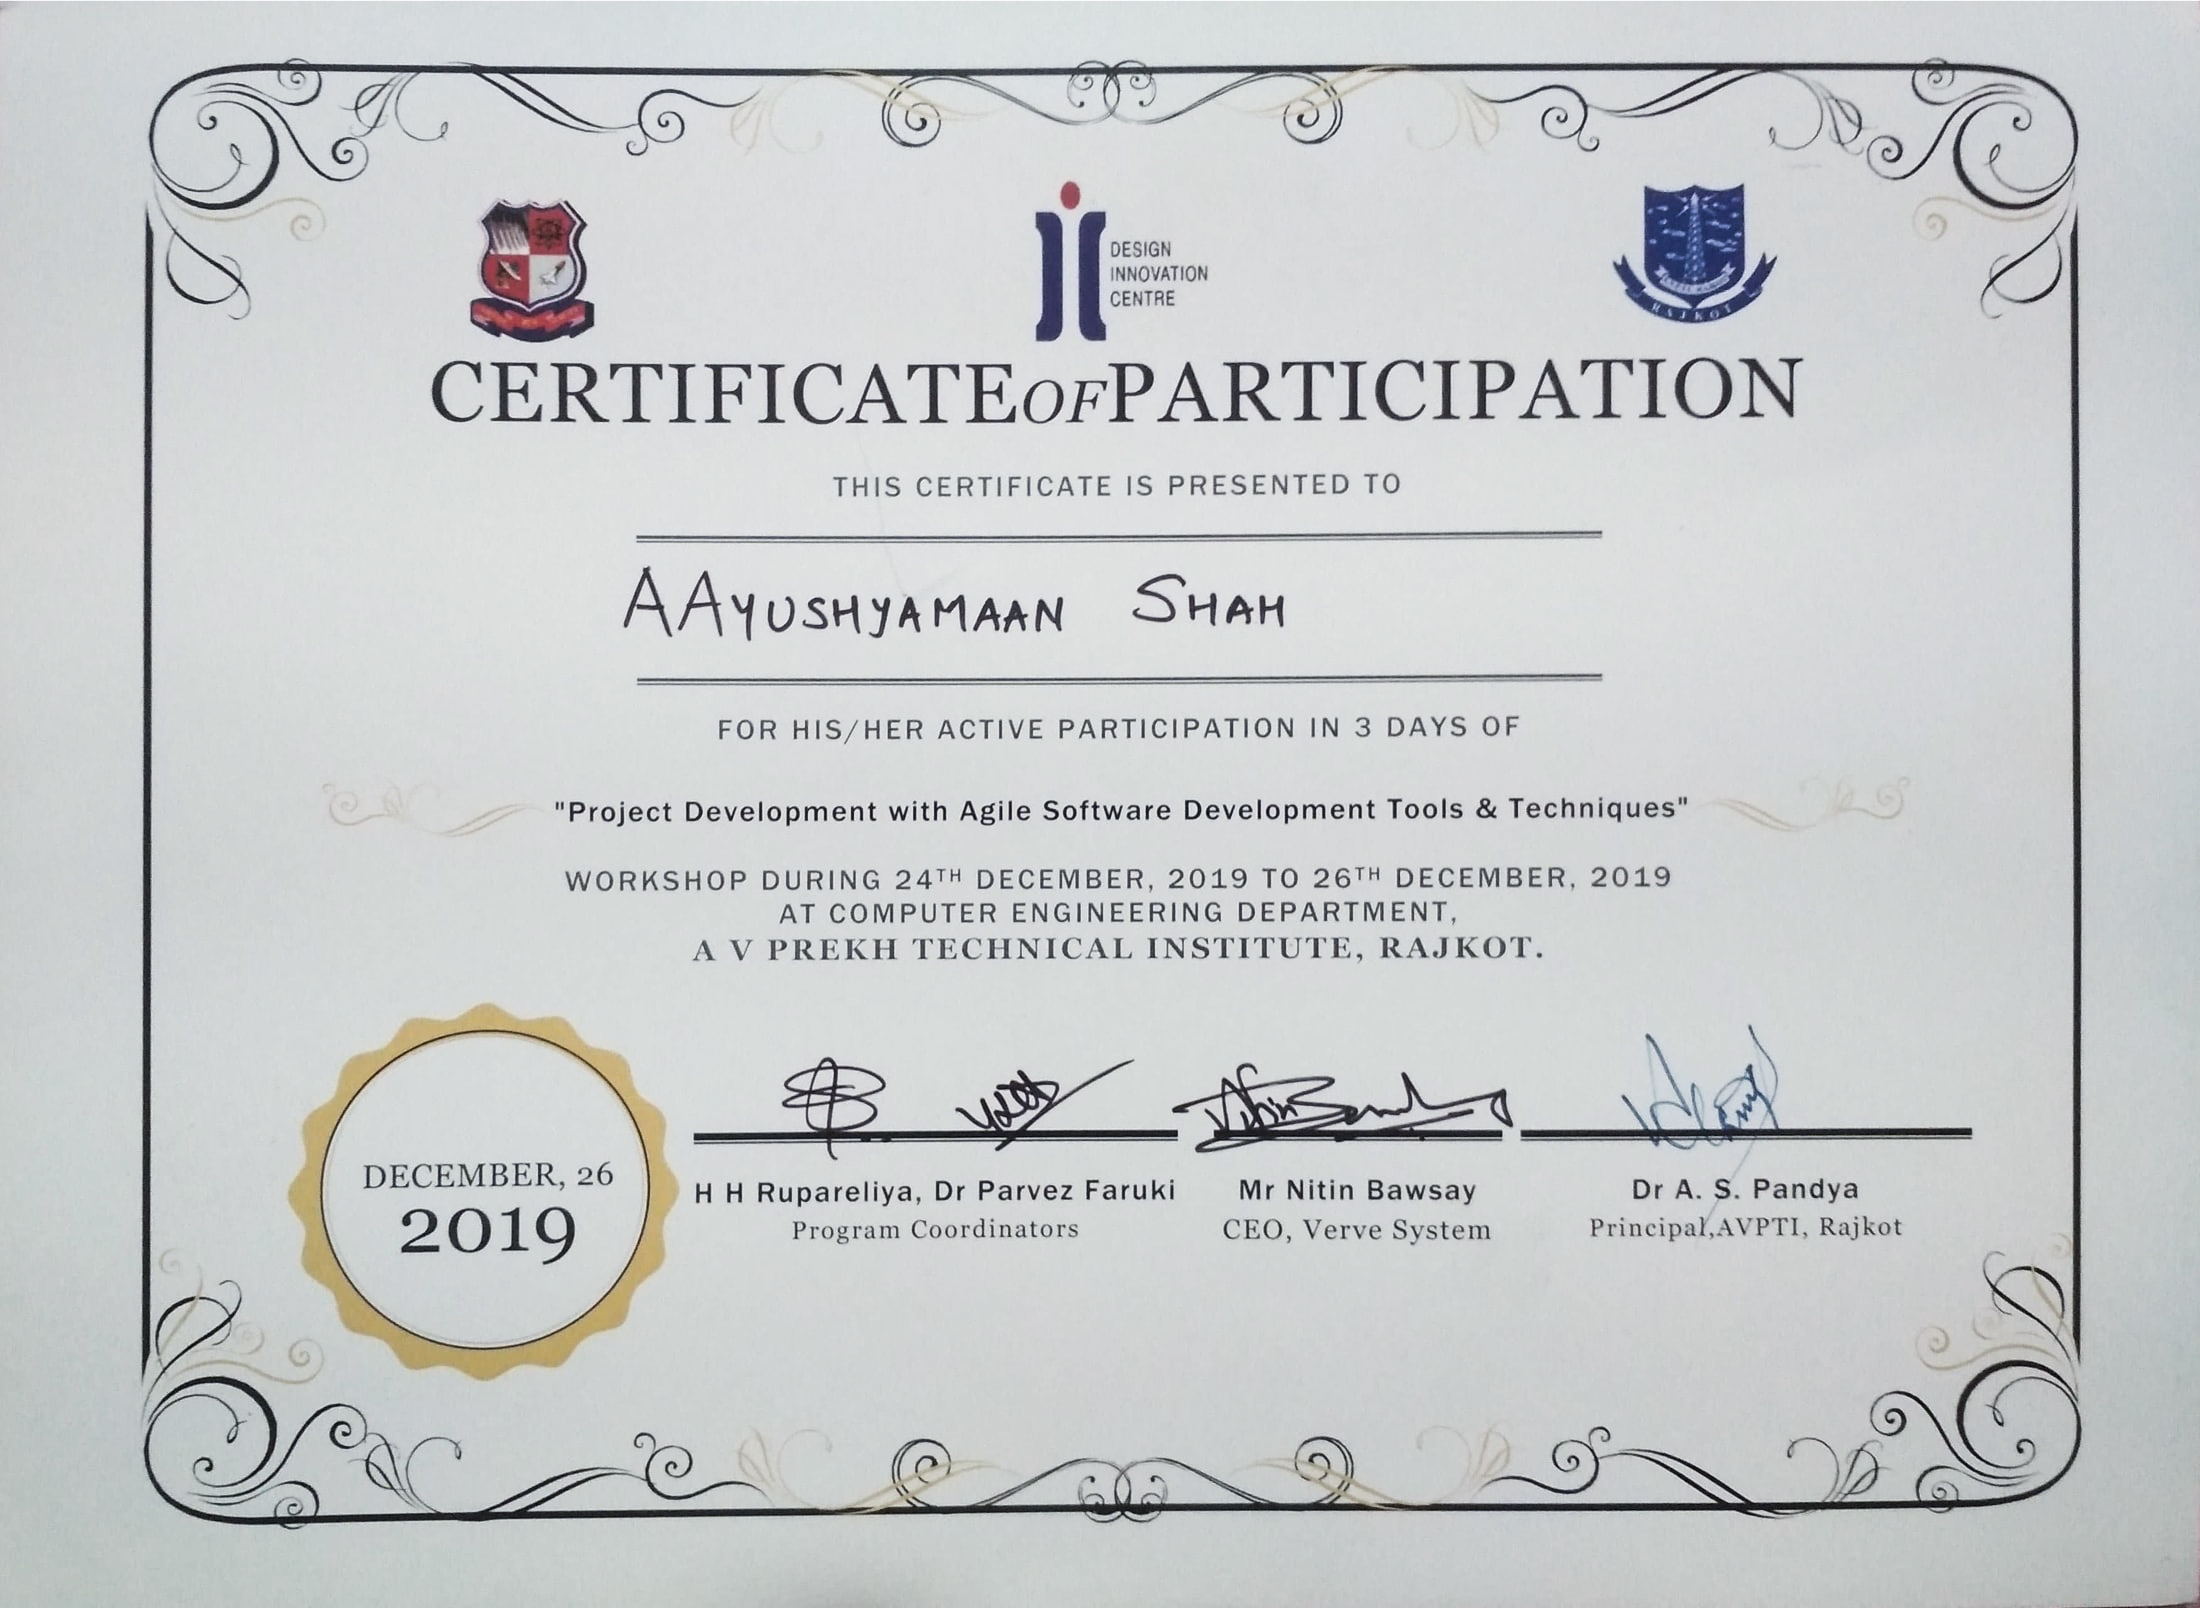 DESIGN
INNOVATION
CENTRE
RAJKOT
CERTIFICATE OF PARTICIPATION
THIS CERTIFICATE IS PRESENTED TO
AAYUSHYAMAAN SHAH
FOR HIS/HER ACTIVE PARTICIPATION IN 3 DAYS OF
"Project Development with Agile Software Development Tools & Techniques"
WORKSHOP DURING 24TH DECEMBER, 2019 TO 26TH DECEMBER, 2019
AT COMPUTER ENGINEERING DEPARTMENT,
A V PREKH TECHNICAL INSTITUTE, RAJKOT.
DECEMBER, 26
2019
H H Rupareliya, Dr Parvez Faruki
Program Coordinators
Mr Nitin Bawsay
CEO, Verve System
Dr A. S. Pandya
Principal,AVPTI, Rajkot